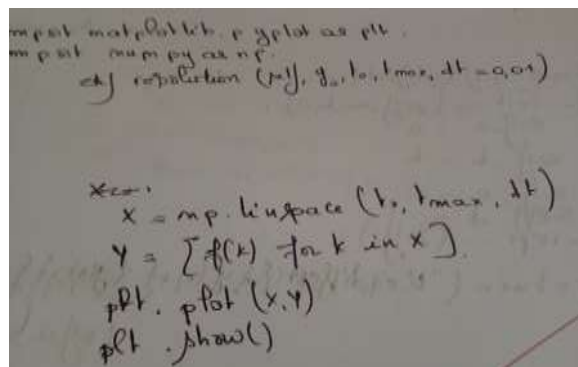 mport matplotlib.pyplot as plt.
mport numpy as np.
def resolution (, y_0, t_0, tmax, dt = 0,01)
X = np.linspace (t_0, tmax, dt)
Y = [f(k) for k in X].
plt.plot (X,Y)
plt.show()